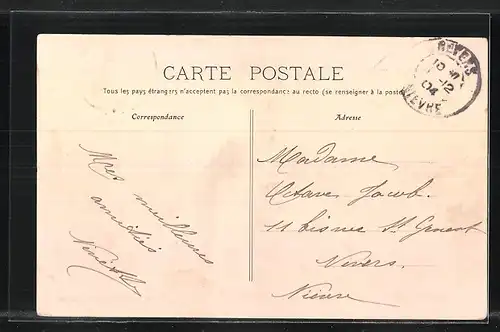 CARTE POSTALE
Tous les pays étrangers n'acceptent pas la correspondance au recto (se renseigner à la poste)
Correspondance
Adresse
NEVERS
12
04
NIEVRE
Mes meilleures
amitiés
Madame
Octave Jacob.
11 bis rue St Genest
Nevers.
Nièvre